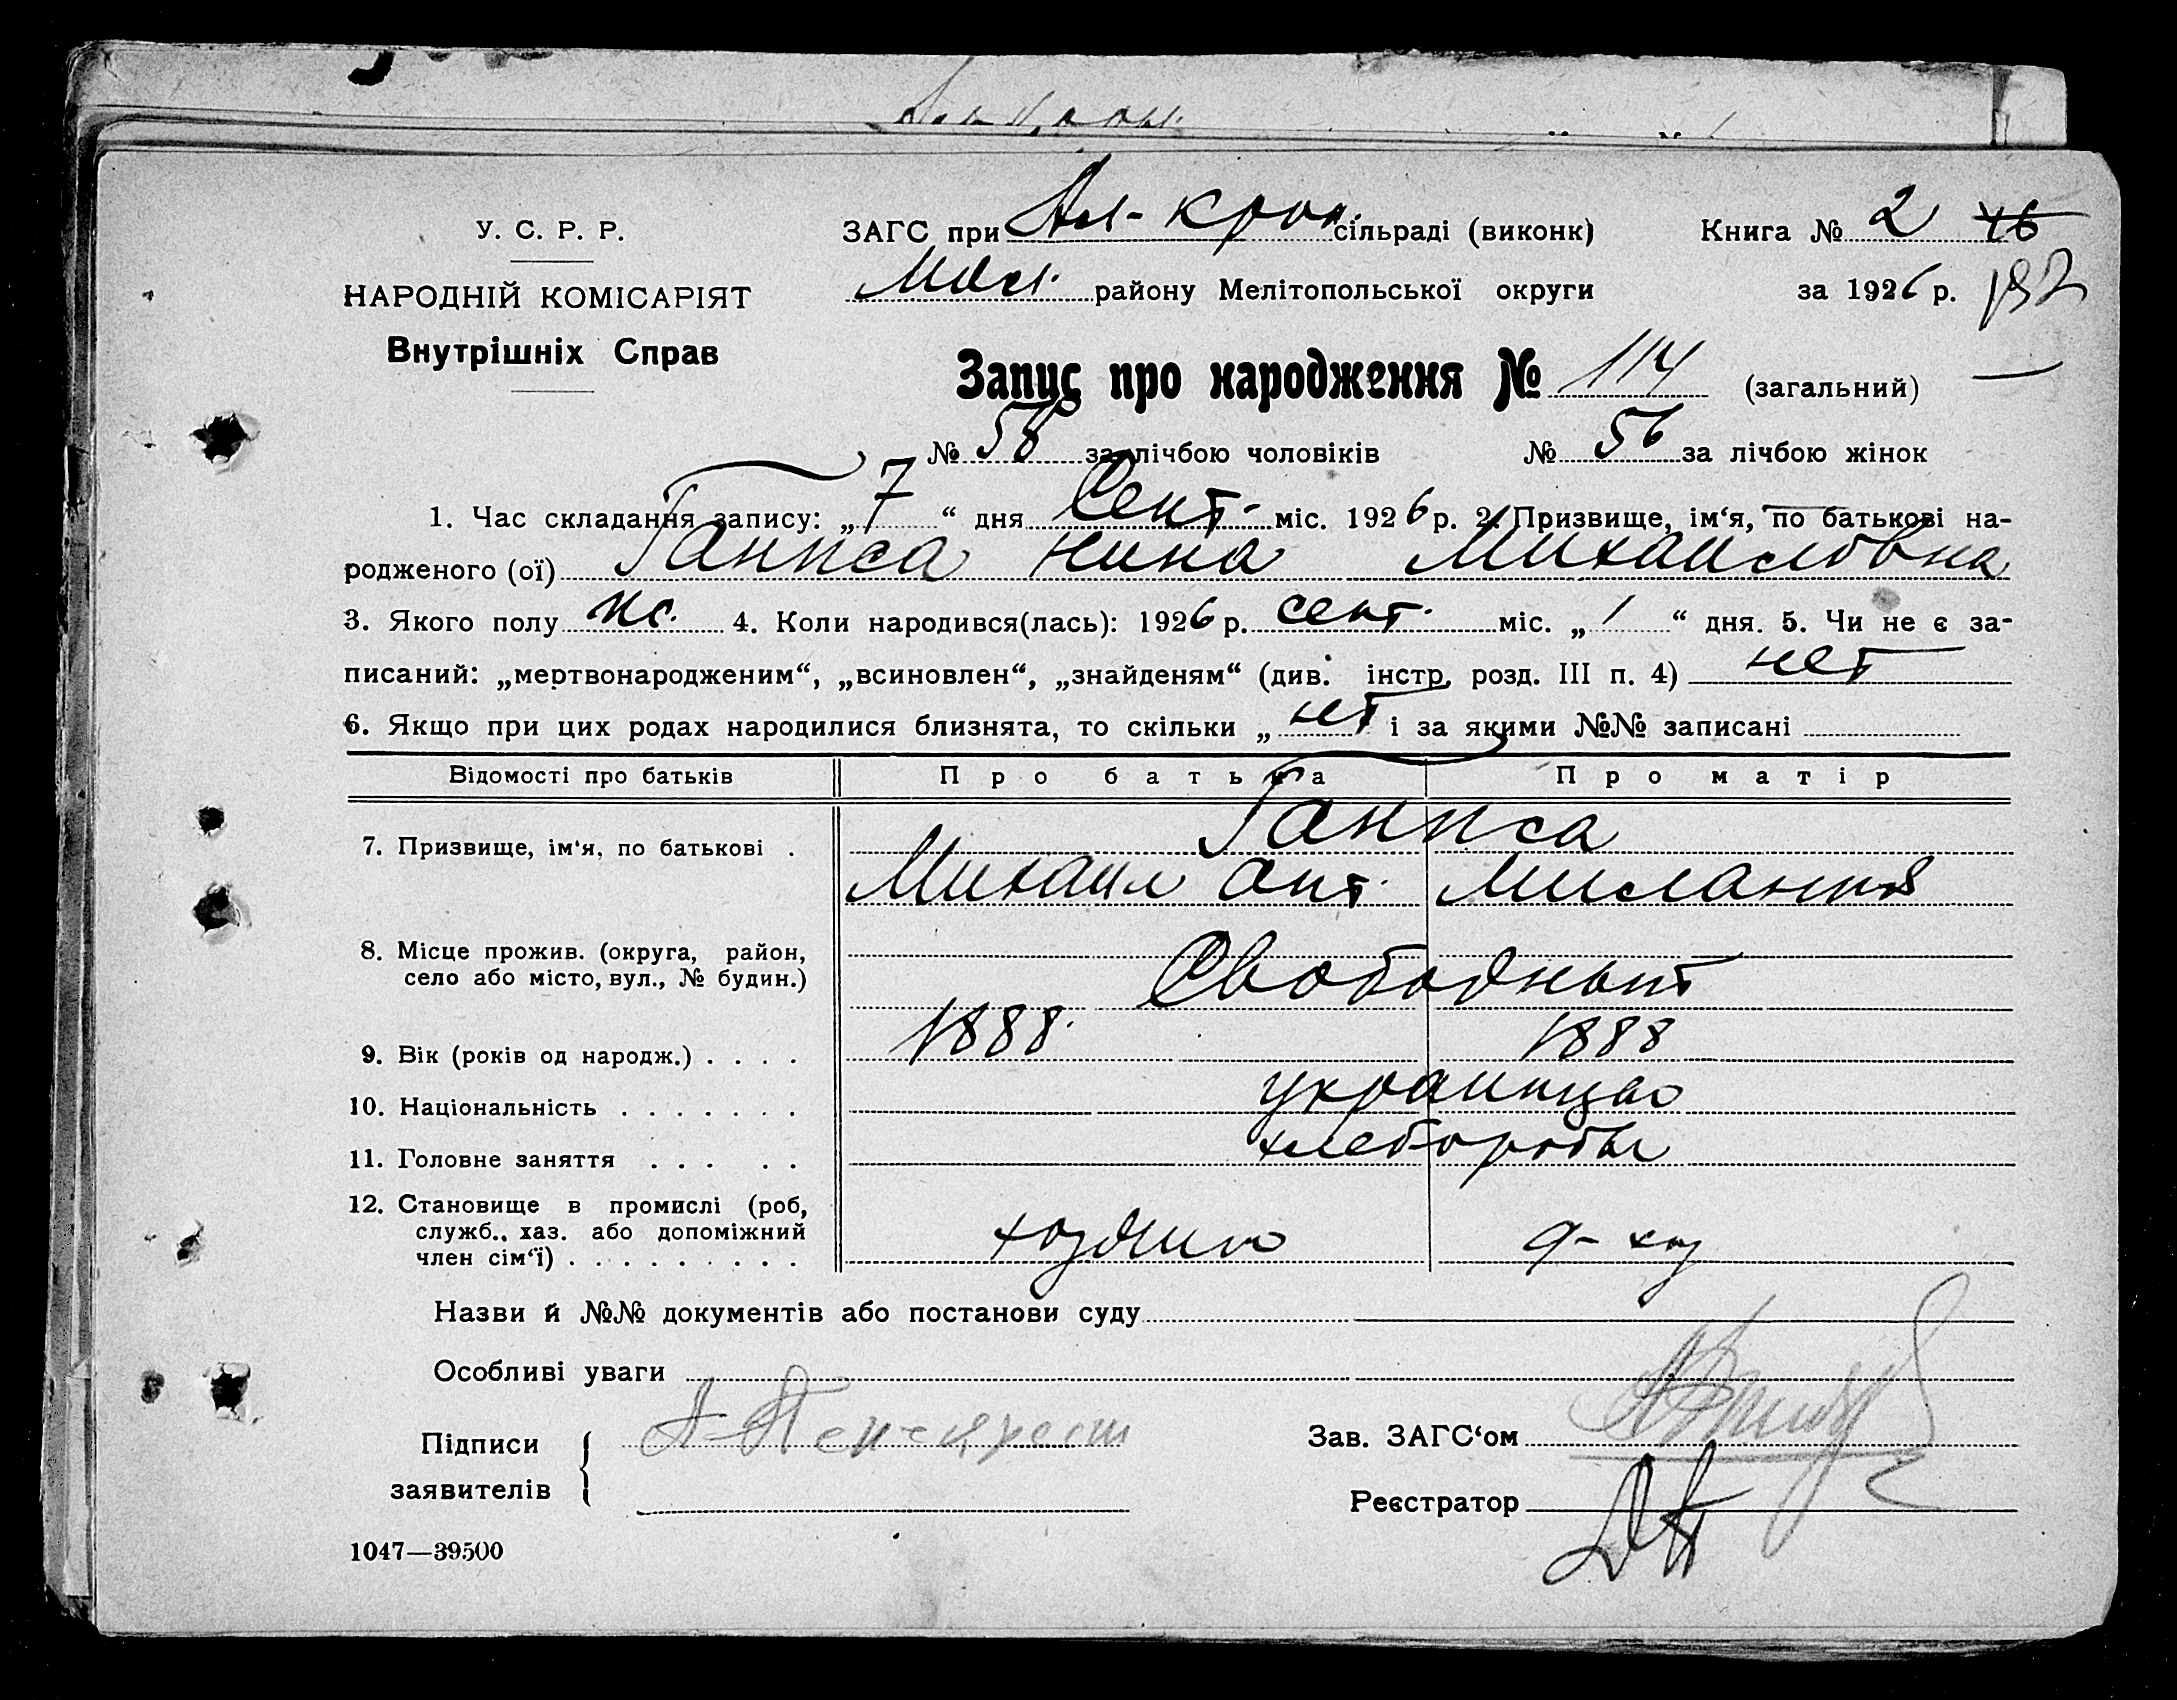 У. С. Р. Р.
НАРОДНІЙ КОМІСАРІЯТ
Внутрішніх Справ
ЗАГС при Ал-Крон. сільраді (виконк)
Мол. району Мелітопольської округи
Книга № 2 46
за 1926 р. 192
Запис про народження № 114 (загальний)
№ 58 за лічбою чоловіків № 56 за лічбою жінок
1. Час складання запису: „7“ дня Сент. міс. 1926 р. 2. Призвище, ім‘я, по батькові на-
родженого (ої) Ганпса Нина Михаиловна
3. Якого полу ж. 4. Коли народився(лась): 1926 р. сент. міс. „1“ дня. 5. Чи не є за-
писаний: „мертвонародженим“, „всиновлен“, „знайденям“ (див. інстр. розд. III п. 4) нет
6. Якщо при цих родах народилися близнята, то скільки „ нет і за якими №№ записані
Відомості про батьків Про батька Про матір
7. Призвище, ім‘я, по батькові . Ганпса
Михаил Ант. Милания
8. Місце прожив. (округа, район,
село або місто, вул., № будин.) Свободный
9. Вік (років од народж.) . . . . 1888. 1888
10. Національність . . . . . . . украинцы
11. Головне заняття . . . . . хлеборобы
12. Становище в промислі (роб,
служб., хаз. або допоміжний
член сім‘ї) . . . . . . . . . хозяин д-хоз
Назви й №№ документів або постанови суду
Особливі уваги
Підписи
заявителів
Зав. ЗАГС‘ом
Реєстратор
1047—39500